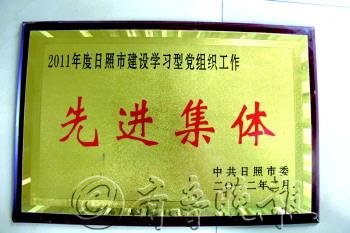 2011年度日照市建设学习型党组织工作
先进集体
中共日照市委
二〇一二年二月
@齐鲁晚报